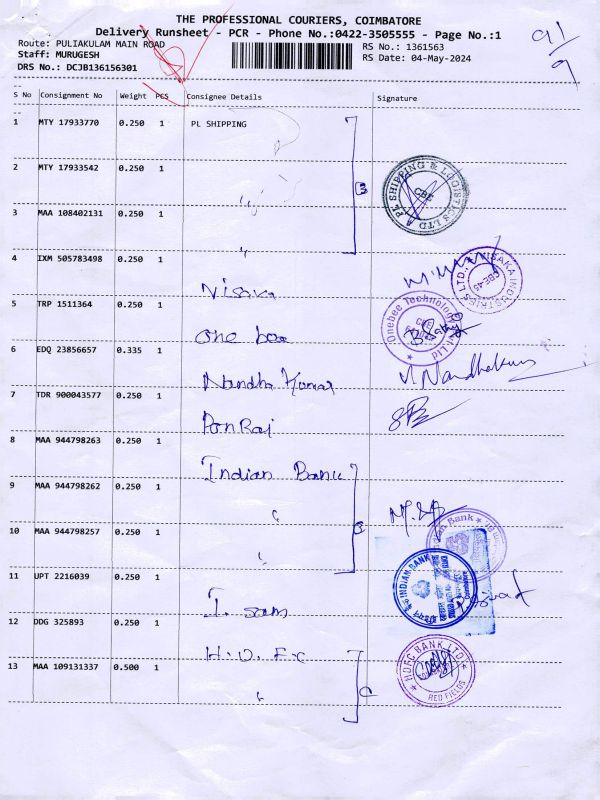 THE PROFESSIONAL COURIERS, COIMBATORE
Delivery Runsheet - PCR - Phone No.:0422-3505555 - Page No.:1
Route: PULIAKULAM MAIN ROAD
RS No.: 1361563
Staff: MURUGESH
RS Date: 04-May-2024
DRS No.: DCJB136156301
91/9
S No Consignment No Weight PCS Consignee Details Signature
1 MTY 17933770 0.250 1 PL SHIPPING
2 MTY 17933542 0.250 1
PL SHIPPING & LOGISTICS LTD
CBE
3 MAA 108402131 0.250 1
4 IXM 505783498 0.250 1
Visaka
VISAKA INDUSTRIES LTD.,
CBE-45
5 TRP 1511364 0.250 1
One bee
Onebee Technology Pvt Ltd
CBE
6 EDQ 23856657 0.335 1
Nandha Kumar
Nandhakum
7 TDR 900043577 0.250 1
PonRaj
8 MAA 944798263 0.250 1
Indian Bank
9 MAA 944798262 0.250 1
10 MAA 944798257 0.250 1
Indian Bank
INDIAN-BANK
11 UPT 2216039 0.250 1
I. sam
12 DDG 325893 0.250 1
H.D.F.C
13 MAA 109131337 0.500 1
HDFC BANK LTD
RED FIELDS